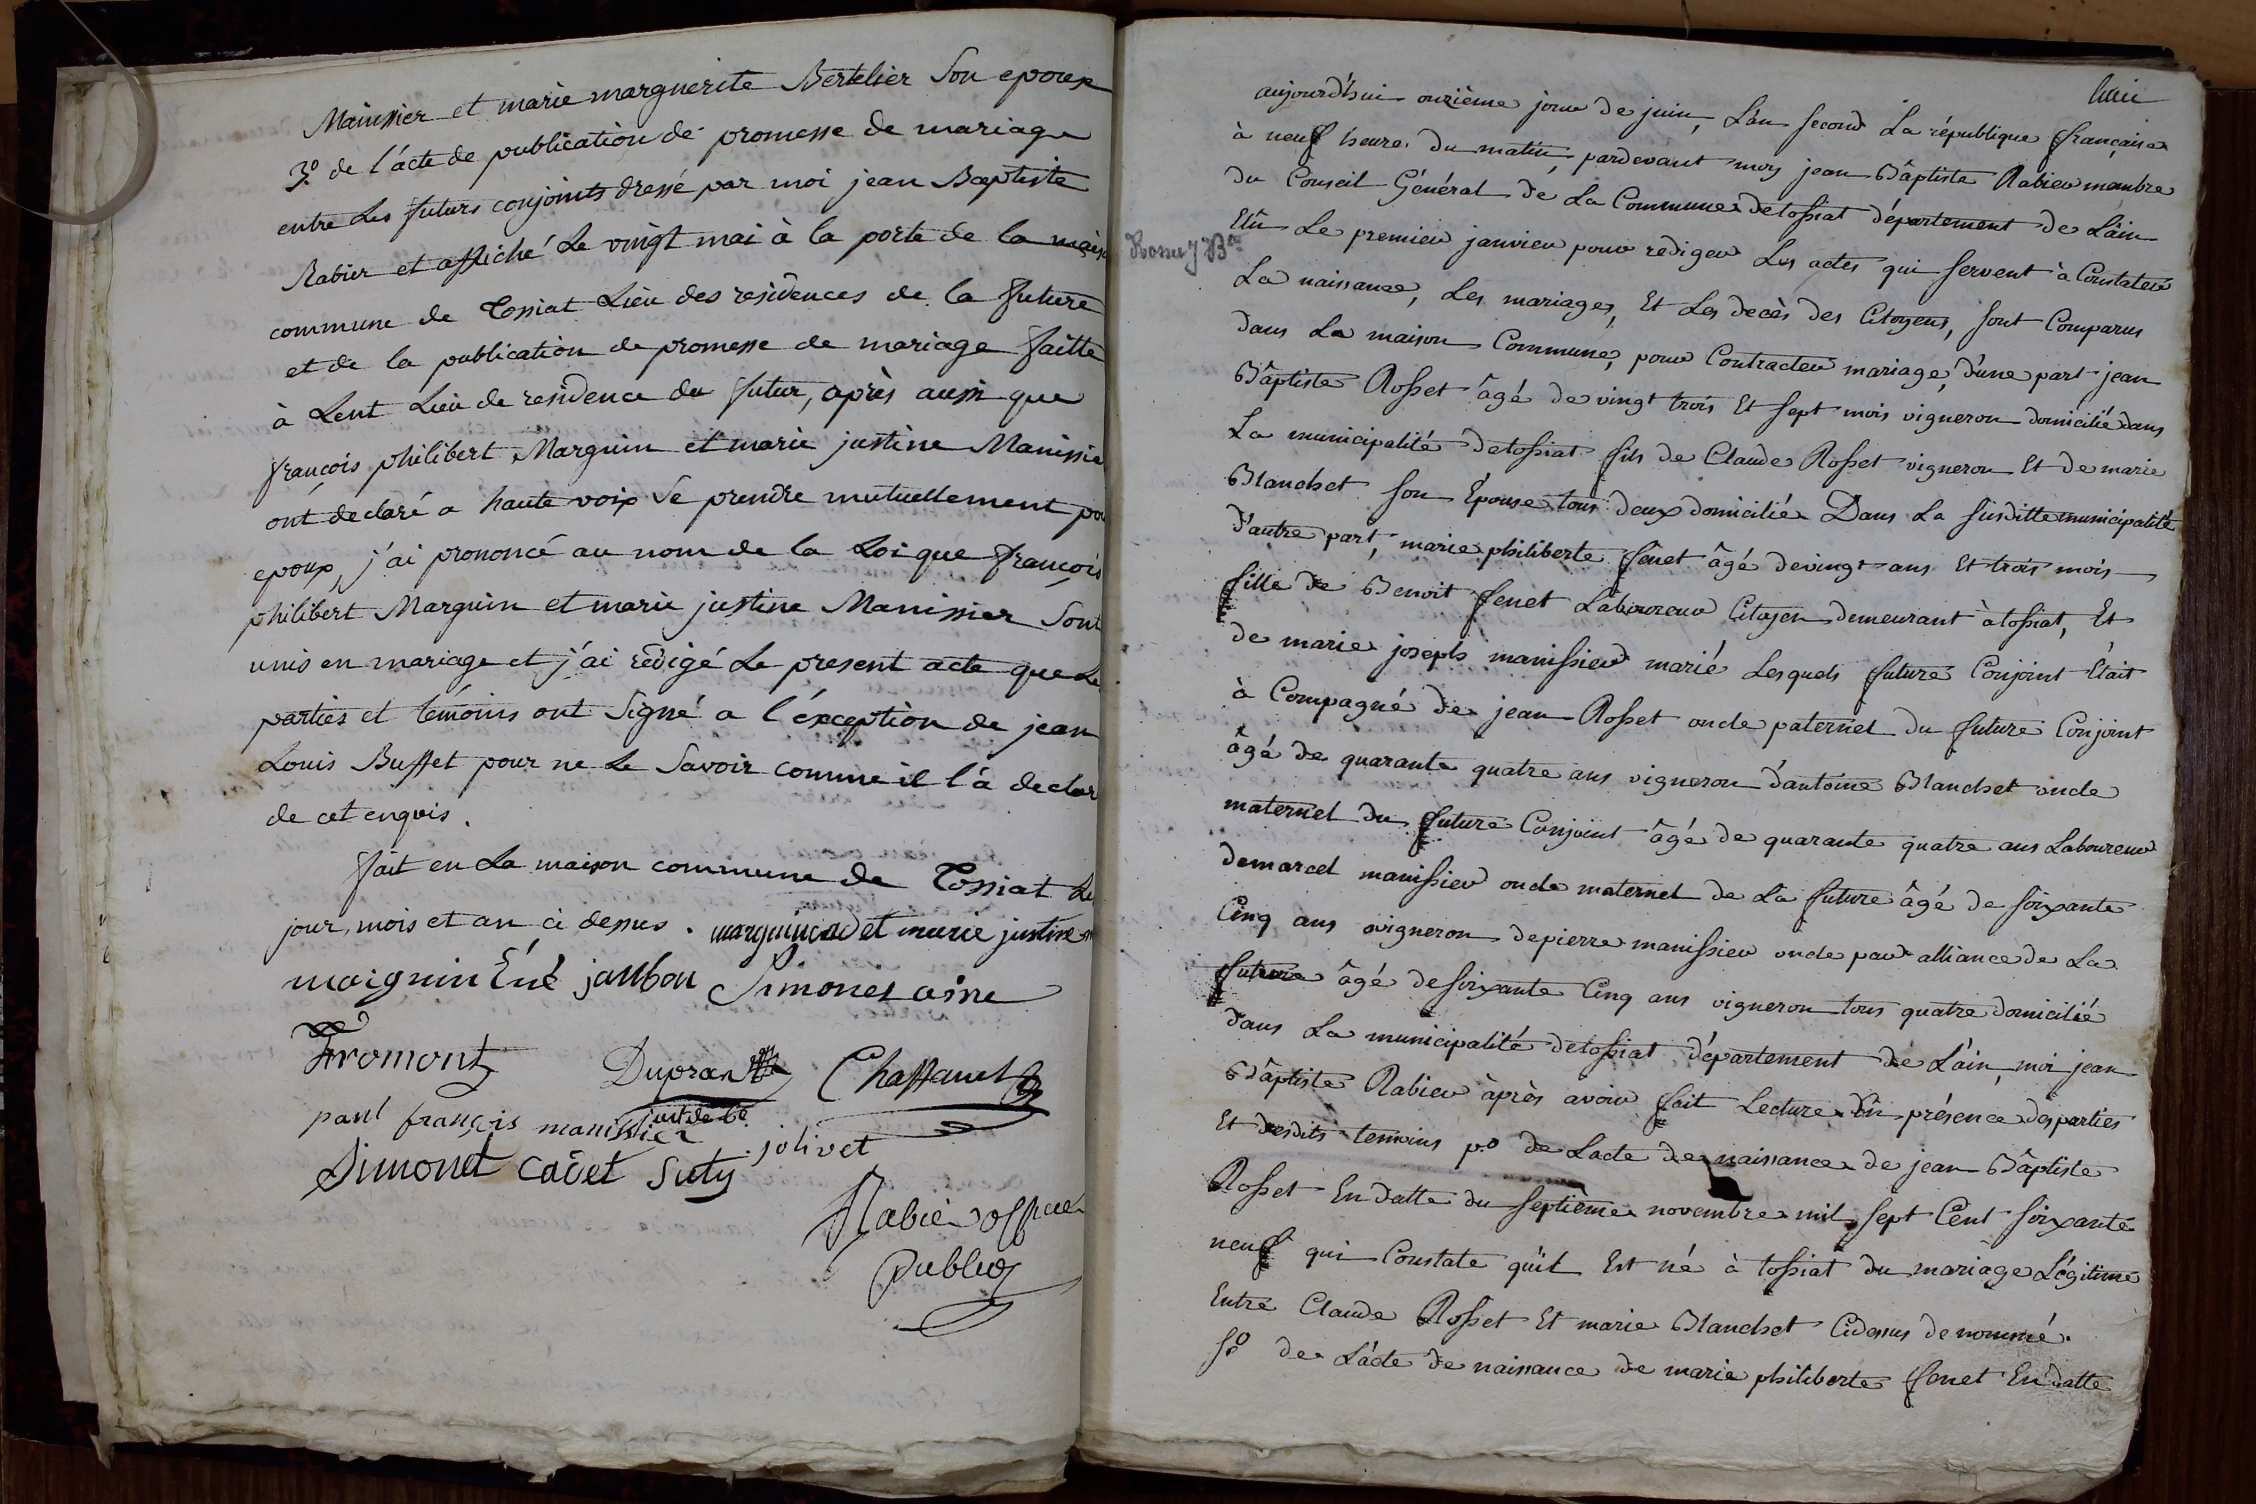 Manissier et marie marguerite Bertelier son epoux
3.o de l'acte de publication de promesse de mariage
entre Les futurs conjoints dressé par moi jean Baptiste
Rabier et affiché Le vingt mai à la porte de la maison
commune de Tossiat Lieu des residences de la future
et de la publication de promesse de mariage faitte
à Lent Lieu de residence du futur, après aussi que
françois philibert Marguin et marie justine Manissier
ont declaré a haute voix se prendre mutuellement pour
epoux, j'ai prononcé au nom de la Loi que françois
philibert Marguin et marie justine Manissier Sont
unis en mariage et j'ai redigé Le present acte que Les
parties et témoins ont Signé a l'éxception de jean
Louis Buffet pour ne Le Savoir comme il l'a declaré
de cet enquis.
fait en La maison commune de Tossiat Les
jour, mois et an ci dessus. marguin cadet marie justine
marguin Éné janbon Simonet aine
Fromont Duprat Chaffanet
paul françois manissier juit de pe jolivet
Simonet cadet Suty
Rabier officier
Public
huit
aujourd'hui onzième jour de juin, L'an second La république française
à neuf heure du matin, pardevant moy jean Bâptiste Rabier membre
du Conseil Général de La Commune detossiat département de L'ain
Elû Le premier janvier pour rediger Les actes qui servent à Constater
Rosset J Bte
La naissance, Les mariages, Et Les decès des Citoyens, sont Comparus
dans La maison Commune, pour Contracter mariage, d'une part jean
Bâptiste Rosset âgé de vingt trois Et sept mois vigneron domicilié dans
La municipalité detossiat fils de Claude Rosset vigneron Et de marie
Blanchet son Épouse tous deux domicilié Dans La susditte municipalité
d'autre part, marie philiberte fenet âgé devingt ans Et trois mois
fille de Benoit fenet Laboureur Citoyen demeurant àtossiat, Et
de marie joseph manissier marié Lesquels future Conjoint Était
à Compagné de jean Rosset oncle paternel du future Conjoint
âgé de quarante quatre ans vigneron d'antoine Blanchet oncle
maternel du future Conjoint âgé de quarante quatre ans Laboureur
demarcel manissier oncle maternel de La future âgé de soixante
Cinq ans vigneron depierre manissier oncle par alliance de La
future âgé desoixante Cinq ans vigneron tous quatre domicilié
dans La municipalité detossiat département de L'ain, moi jean
Bâptiste Rabier àprès avoir fait Lecture En présence des parties
Et desdits temoins p.o de Lacte de naissance de jean Bâptiste
Rosset En datte du septième novembre mil sept Cent soixante
neuf qui Constate qu'il Est né à tossiat du mariage Légitime
Entre Claude Rosset Et marie Blanchet Cidessus denommé.
s.o de L'acte de naissance de marie philiberte fenet En datte